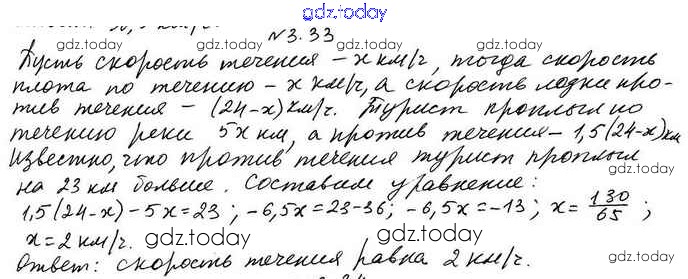 gdz.today
№3.33
gdz.today gdz.today gdz.today
Пусть скорость течения - x км/ч, тогда скорость
плота по течению - x км/ч, а скорость лодки про-
тив течения - (24-x) км/ч. Турист проплыл по
течению реки 5x км, а против течения - 1,5(24-x) км
Известно, что против течения турист проплыл
gdz.today gdz.today gdz.today
на 23 км больше. Составим уравнение:
1,5(24-x)-5x=23; -6,5x=23-36; -6,5x=-13; x=130/65;
x=2 км/ч.
gdz.today gdz.today
Ответ: скорость течения равна 2 км/ч.
gdz.today